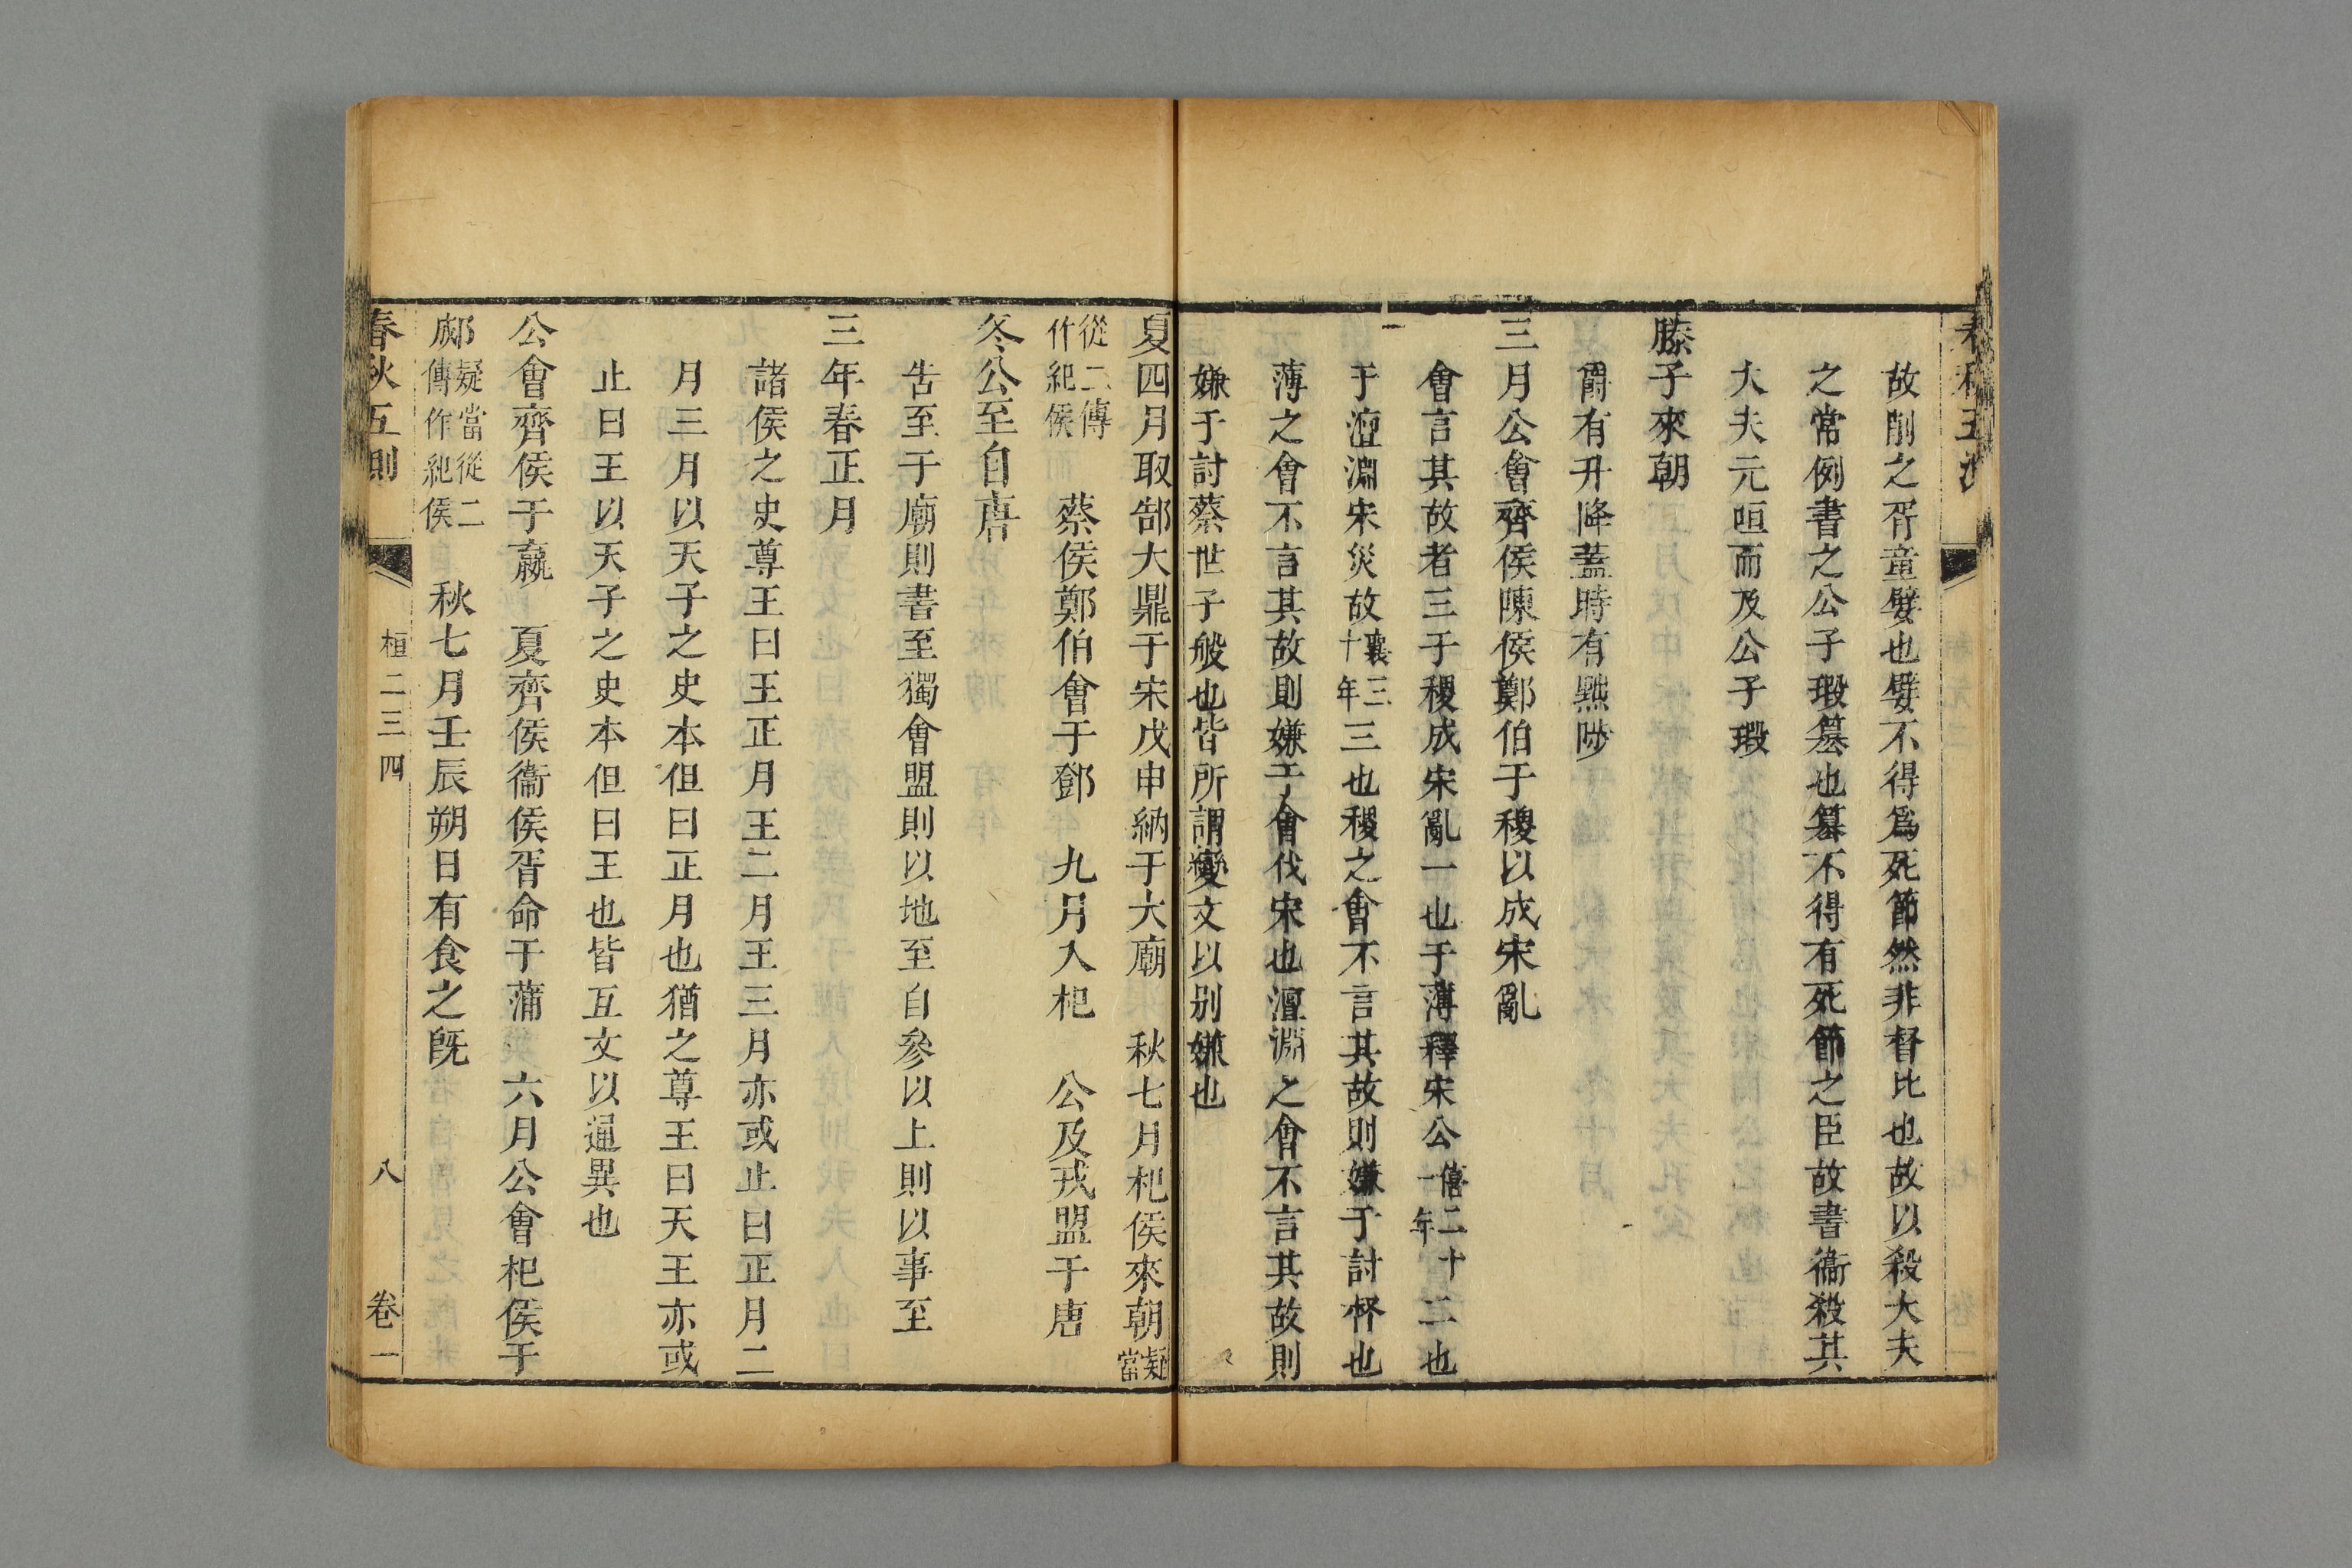 故削之胥童嬖也嬖不得爲死節然非督比也故以殺大夫
之常例書之公子瑕簒也簒不得有死節之臣故書衞殺其
大夫元咺而及公子瑕
滕子來朝
爵有升降蓋時有黜陟
三月公會齊侯陳侯鄭伯于稷以成宋亂
會言其故者三于稷成宋亂一也于薄釋宋公僖二十一年二也
于澶淵宋災故襄三十年三也稷之會不言其故則嫌于討督也
薄之會不言其故則嫌于會伐宋也澶淵之會不言其故則
嫌于討蔡世子般也皆所謂變文以别嫌也
夏四月取郜大鼎于宋戊申納于大廟　秋七月杞侯來朝疑當
從二傳作紀侯　蔡侯鄭伯會于鄧　九月入杞　公及戎盟于唐
冬公至自唐
告至于廟則書至獨會盟則以地至自參以上則以事至
三年春正月
諸侯之史尊王曰王正月王二月王三月亦或止曰正月二
月三月以天子之史本但曰正月也猶之尊王曰天王亦或
止曰王以天子之史本但曰王也皆互文以通異也
公會齊侯于嬴　夏齊侯衞侯胥命于蒲　六月公會杞侯于
郕疑當從二傳作紀侯　秋七月壬辰朔日有食之旣
春秋五則
桓二三四
八
卷一